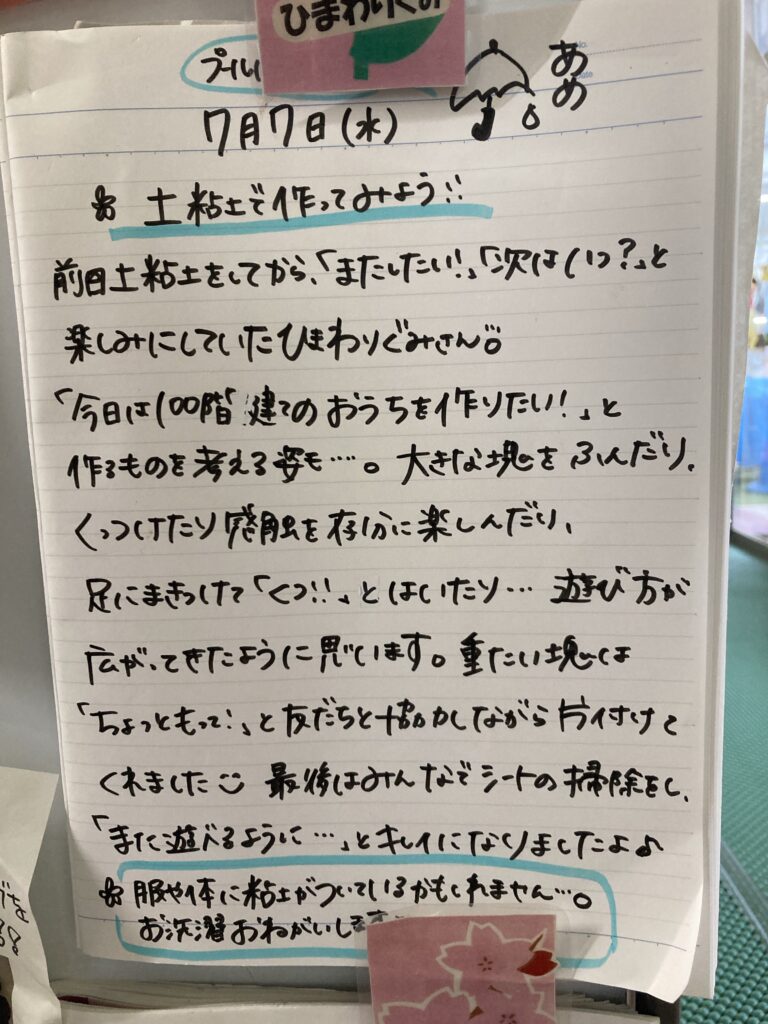 ひまわりぐみ
プール
あめ
7月7日(水)
土粘土で作ってみよう!!
前回土粘土をしてから、「またしたい!」「次はいつ?」と
楽しみにしていたひまわりぐみさん
「今日は100階建てのおうちを作りたい!」と
作るものを考える姿も…。大きな塊をふんだり、
くっつけたり感触を存分に楽しんだり、
足にまきつけて「くつ!!」とはいたり… 遊び方が
広がってきたように思います。重たい塊は
「ちょっともって!」と友だちと協力しながら片付けて
くれました 最後はみんなでシートの掃除をし、
「また遊べるように…」とキレイになりましたよ♪
服や体に粘土がついているかもしれません…。
お洗濯おねがいします